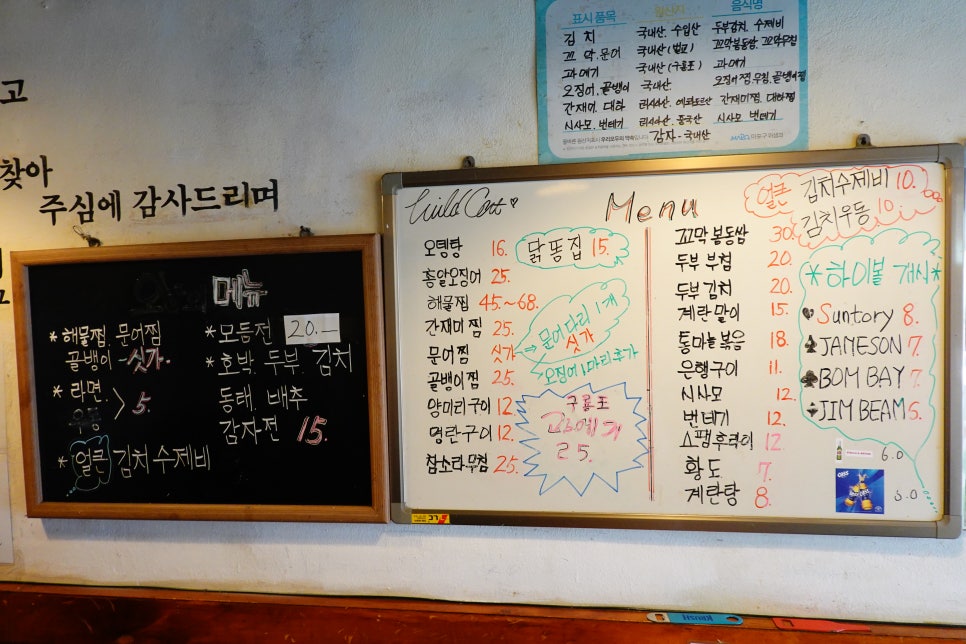 고
찾아
주심에 감사드리며
메뉴
* 해물찜. 문어찜
골뱅이 - 싯가.
* 라면. > 5.
우동
* 얼큰 김치수제비
* 모듬전 20.-
* 호박. 두부. 김치
동태 배추
감자전 15.
표시 품목 원산지 음식명
김치 국내산. 수입산 두부김치. 수제비
꼬막.문어 국내산(벌교) 꼬막봉동쌈. 꼬막무침
과메기 국내산(구룡포) 과메기
오징어. 골뱅이 국내산 오징어찜.무침. 골뱅이찜
간재미. 대하 간재미찜. 대하찜
시사모. 번데기 러시아산. 중국산 시사모. 번데기
감자-국내산
Menu
오뎅탕 16.
총알오징어 25.
해물찜 45~68.
간재미찜 25.
문어찜 싯가
골뱅이찜 25.
양미리구이 12.
명란구이 12.
참소라무침 25.
닭똥집 15.
문어다리 1개
싯가
오징어 1마리추가
구룡포
과메기
25.
얼큰 김치수제비 10.
김치우동 10.
꼬막봉동쌈 30.
두부 부침 20.
두부 김치 20.
계란말이 15.
통마늘볶음 18.
은행구이 11.
시사모 12.
번데기 12.
스팸후라이 12.
황도 7.
계란탕 8.
* 하이볼 개시 *
Suntory 8.
JAMESON 7.
BOM BAY 7.
JIM BEAM 5.
6.0